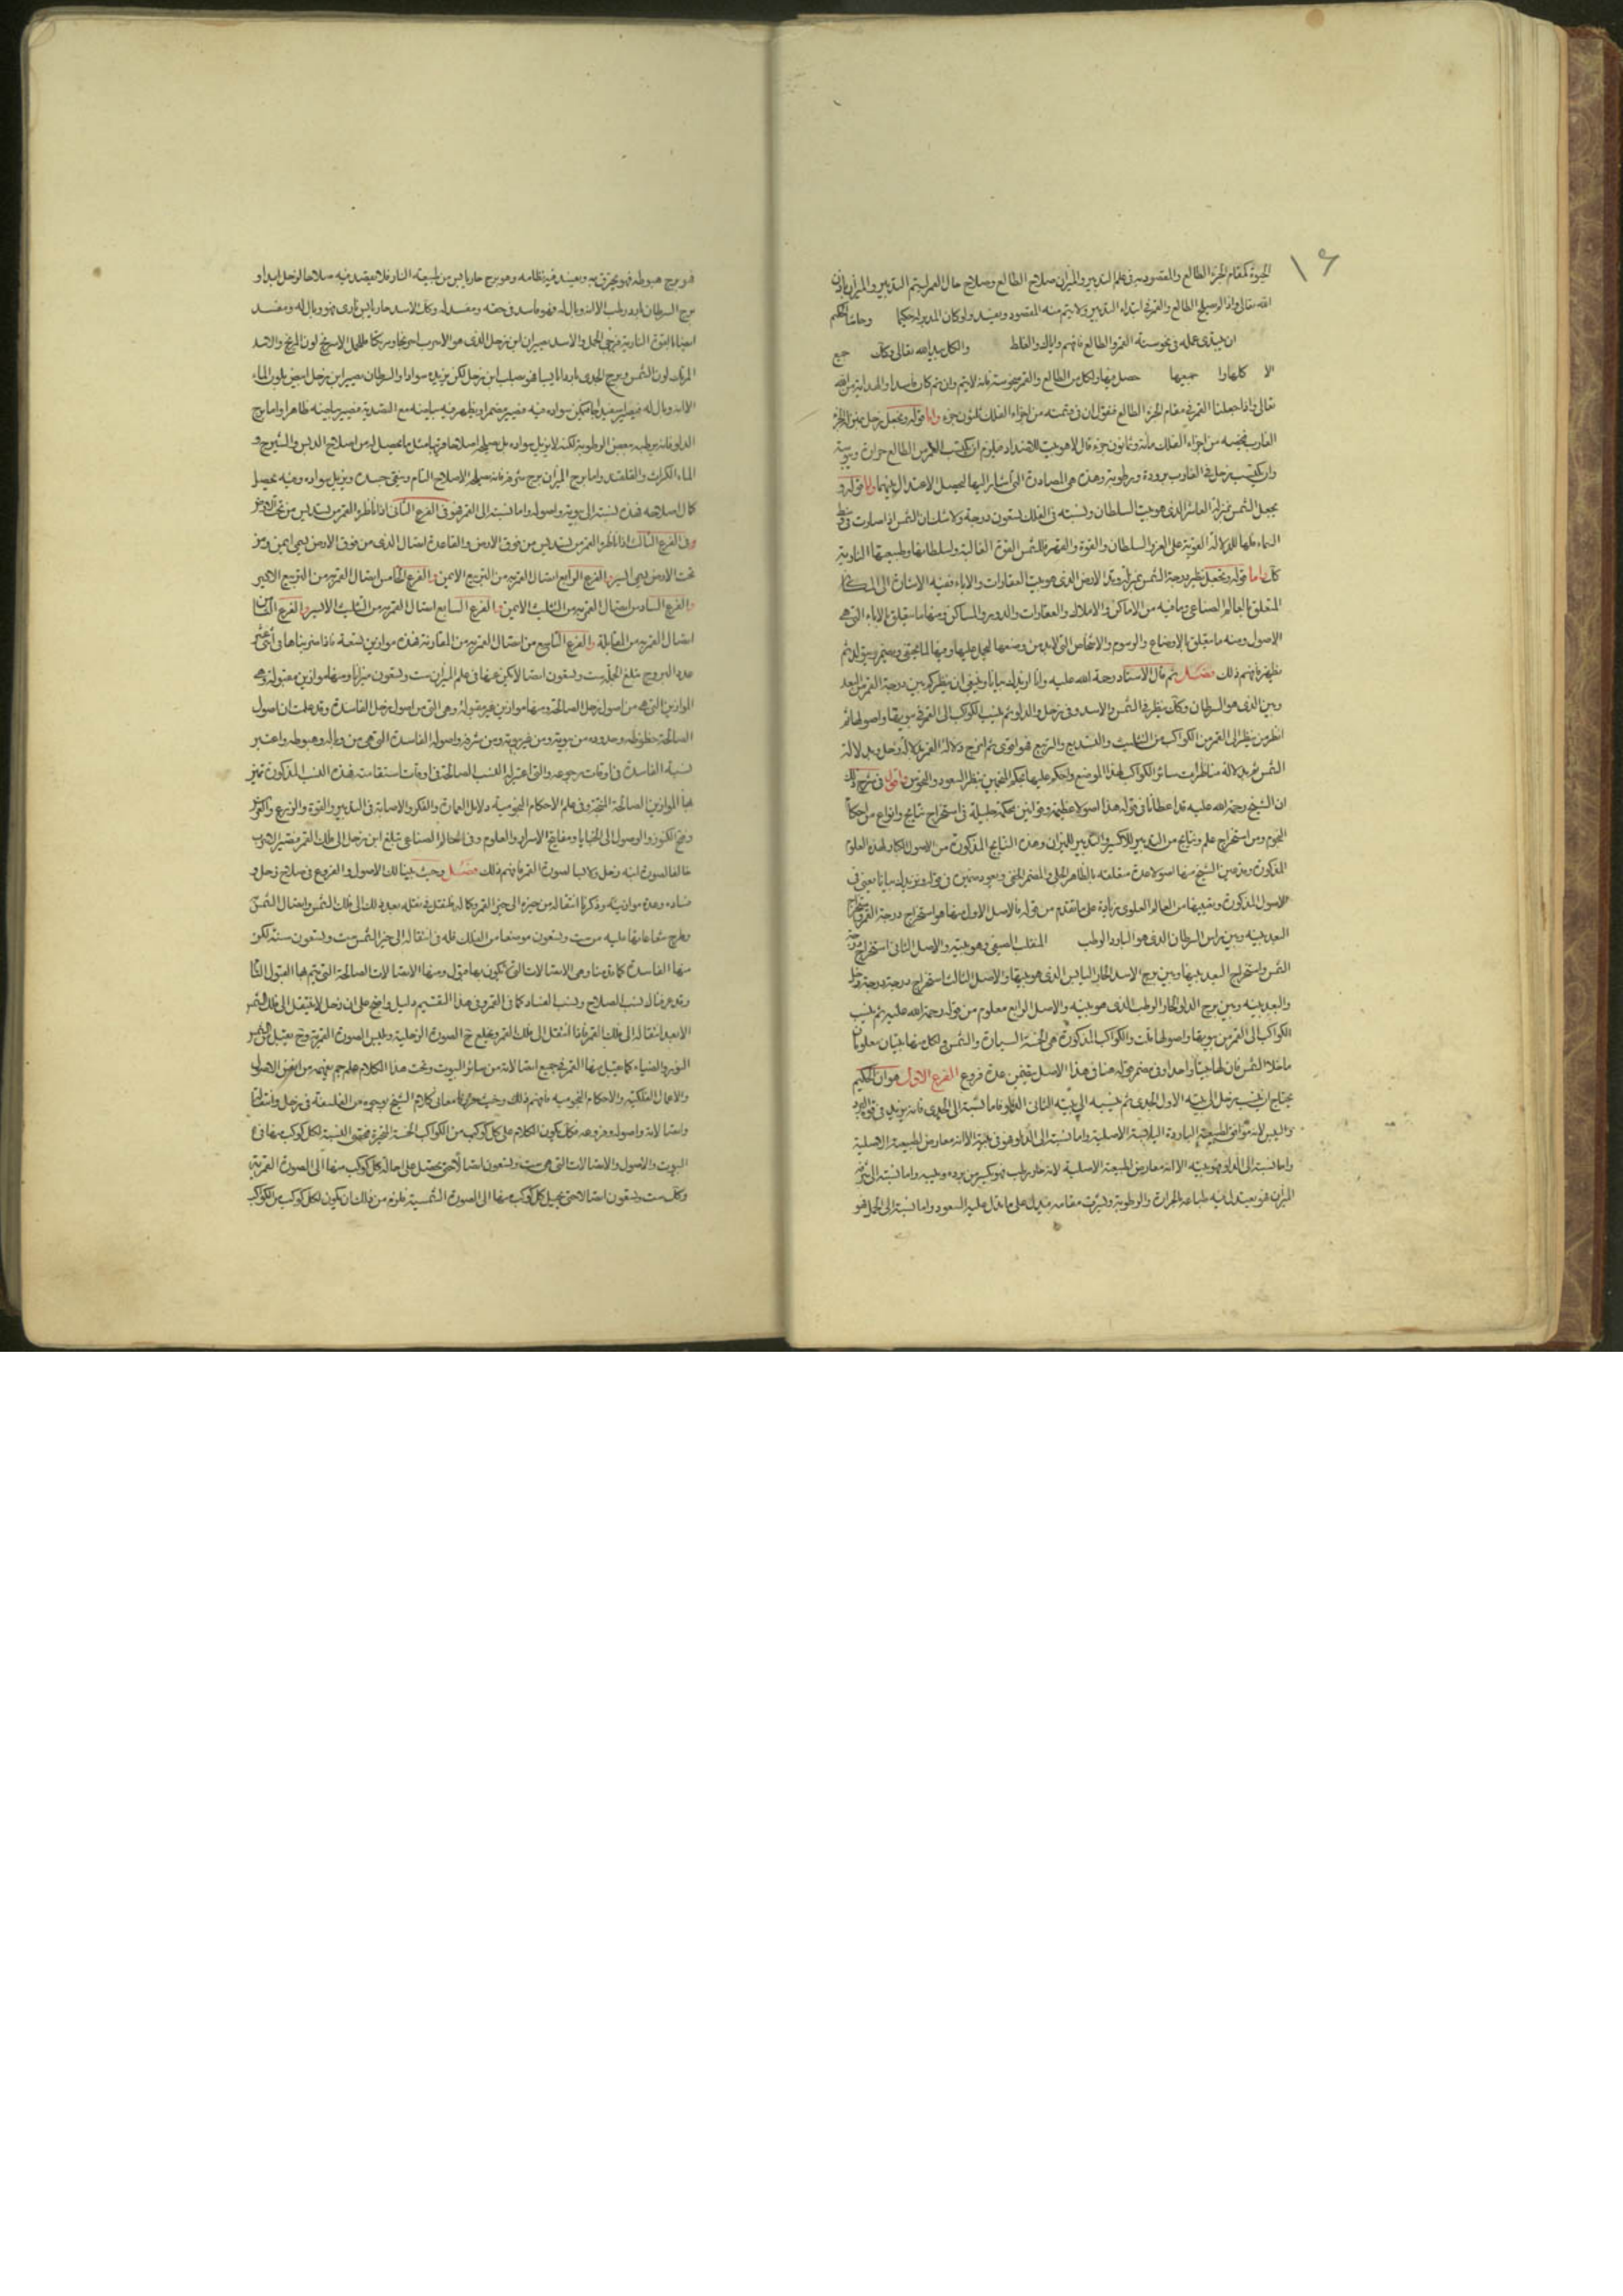 ١٦
الحيوة كمقام الجزء الطالع والمقصود من في علم التدبير والميزان صلاح الطالع وصلاح حال القمر ليتم التدبير والميزان باذن
الله تعالى واذا لم يصلح الطالع والقمر في ابتداء التدبير فلا يتم منه المقصود ويفسد ولو كان المدبر له حكيما وحاشا الحكيم
ان يبتدى عمله في نحوسة القمر والطالع فافهم واياك والغلط والكل بيد الله تعالى وكان جمع
الا كلها وا جميعها حصل فيها ولكل من الطالع والقمر نحوسة فانه لا يتم وان تم كان فاسدا والهداية من الله
تعالى واذا جعلنا القمر في مقام الجزء الطالع فقولان في قسمته من اجزاء الفلك ثلثون جزء واما قوله ويجعل زحل بمنزلة الجزء
الغارب فحصه من اجزاء الفلك مائة وثمانون جزء قال لا هو بيت الاضداد فيلزم ان يكتسب القمر من الطالع حرارة ويبوسة
وان يكتسب زحل في الغارب برودة ورطوبة وهذه هي المضادة التي اشار اليها ليحصل الاعتدال بينهما واما قوله و
يجعل الشمس بمنزلة العاشر الذي هو بيت السلطان ونسبته في الفلك تسعون درجة ولا شك ان الشمس اذا صارت في وسط
السماء فلها الدلالة القوية على العز والسلطان والقوة والقهر فللشمس القوة الغالبة ولسلطانها وطبيعتها النارية
كان واما قوله ويجعل نظير درجة الشمس بمنزلة وتد الارض الذي هو بيت العقارات والاباء ففيه الاشارة الى المكان
المتعلق بالعالم الصناعي وما فيه من الاماكن والاملاك والعقارات والدور والمساكن ومنها ما يتعلق بالاباء التي هي
الاصول ومنه ما يتعلق بالاوضاع والرسوم والاشخاص التي لا بد من وضعها ليحمل عليها وفيها لما يختفي ويضمر ويتولد ثم
يظهر فافهم ذلك فصل ثم قال الاستاد رحمة الله عليه وانا ازيدك بيانا وينبغي ان ينظر كم بين درجة القمر من البعد
وبين الذي هو السرطان وكان ينظر في الشمس والاسد وفي زحل والدلو ثم ينسب الكواكب الى القمر في بيوتها واصولها ثم
انظر من ينظر الى القمر من الكواكب من التثليث والتسديس والتربيع فهو اقوى ثم امزج دلالة القمر بدلالة زحل وبدلالة
الشمس ثم بدلالة مناظرات سائر الكواكب لهذا الموضع واحكم عليها بحكم النجمين بنظر السعود والنحوس فاقول في شرح ذلك
ان الشيخ رحمة الله عليه قد اعطانا في قوله هذا اصولا عظيمة وقوانين محكمة جليلة في استخراج نتايج وانواع من احكام
النجوم ومن استخراج علم ونتايج من التدبير للاكسير والتدبير للميزان وهذه النتايج المذكورة من الاصول الكبار لهذه العلوم
المذكورة وقد عين الشيخ منها اصولا عدة متعلقة بالظاهر الجلي والمضمر الخفي ويعود ضمين في قوله ونزيدك بيانا يعني في
الاصول المذكورة وتعيينها من العالم العلوي بزيادة على ما تقدم من قوله فالاصل الاول منها هو استخراج درجة القمر واستخراج
البعد بينه وبين راس السرطان الذي هو البارد الرطب المنقلب الصيفي وهو بيته والاصل الثاني استخراج درجة
الشمس واستخراج البعد بينها وبين برج الاسد الحار اليابس الذي هو بيتها والاصل الثالث استخراج درجة درجة زحل
والبعد بينه وبين برج الدلو الحار الرطب الذي هو بيته والاصل الرابع معلوم من قوله رحمة الله عليه ثم ينسب
الكواكب الى القمر من بيوتها واصولها قلت والكواكب المذكورة هي الخمسة السيارة والشمس ولكل منها بيتان معلومان
ما خلا الشمس فان لها بيتا واحدا وفي مضمر قوله هنا في هذا الاصل يتضمن عدة فروع الفرع الاول هو ان الحكيم
يحتاج ان ينسب زحل الى بيته الاول الجدي ثم ينسبه الى بيته الثاني الدلو فاما نسبته الى الجدي فانه يزيد في قوة البرد
واليبس لانه موافق لطبيعته الباردة اليابسة الاصلية واما نسبته الى الدلو فهو في بيته الا انه معارض لطبيعته الاصلية
واما نسبته الى الدلو فهو بيته الا انه معارض لطبيعته الاصلية لانه حار رطب فهو يكسر من برده ويبسه واما نسبته الى شرفه
الميزان فهو يعتدل فيه طباعه بالحرارة والرطوبة ولشرف مقامه فيدل على ما تدل عليه السعود واما نسبته الى الحمل فهو
فهو برج هبوطه فهو يحترق به ويفسد فيه نظامه وهو برج حار يابس من طبيعة النار فلا يقصد فيه صلاحا لزحل ابدا و
برج السرطان بارد رطب الا انه وباله فهو فاسد في حقه ومفسد له وكان الاسد حار يابس ناري فهو وباله ومفسد
ايضا بالقوة النارية ففي الحمل والاسد يصيران ابن زحل الذي هو الاسرب
المرتك لون الشمس وبرج الجدي بارد يابس فهو يصلب ابن زحل لكن يزيده سوادا والسرطان يصير ابن زحل ابيض بلون الماء
الا انه وباله فيصير اسفيداجا
الدلو فانه يرطبه بعض الرطوبة لكنه لا يزيل سواده بل
الماء الكراث والقلقند واما برج الميزان برج شرفه فانه يصلحه الاصلاح التام وينقي جسده ويزيل سواده وفيه يحصل
كمال اصلاحه فهذه نسبته الى بيوته واصوله واما نسبته الى القمر فهو في الفرع الثاني اذا ناظره القمر من تسديس من تحت الارض
وفي الفرع الثالث اذا ناظره القمر من تسديس من فوق الارض والقاعدة اتصال الذي من فوق الارض يسمى ايمن ومن
تحت الارض يسمى ايسر والفرع الرابع اتصال القمر به من التربيع الايمن والفرع الخامس اتصال القمر به من التربيع الايسر
والفرع السادس اتصال القمر به من التثليث الايمن والفرع السابع اتصال القمر به من التثليث الايسر والفرع الثامن
اتصال القمر به من المقابلة والفرع التاسع من اتصال القمر به من المقارنة فهذه موازين تسعة فاذا ضربناها في اثنى عشر
عدد البروج تبلغ الجملة ست وتسعون اتصالا يكون عنها في علم الميزان ست وتسعون ميزانا ومنها موازين مقبولة وهي
الموازين التي هي من اصول زحل الصالحة ومنها موازين غير مقبولة وهي التي من اصول زحل الفاسدة وقد علمت ان اصول
الصالحة حظوظه وحدوده من بيوته ومن غير بيوته ومن شرفه واصوله الفاسدة التي هي من وباله وهبوطه واعتبر
نسبة الفاسدة في اوقات رجوعه والق اعتبار النسب الصالحة في اوقات استقامته فهذه النسب المذكورة تميز
بها الموازين الصالحة المنتجة وفي علم الاحكام النجومية دلايل العمارة والفكر والاصابة في التدبير والقوة والزرع والغرس
وفتح الكنوز والوصول الى الخبايا ومفاتيح الاسرار والعلوم وفي الحال الصناعي تبلغ ابن زحل الى فلك القمر فيصير الاسرب
خالعا لصورة ابنه زحل ولابسا لصورة القمر فافهم ذلك فصل وحيث بينا لك الاصول والفروع في صلاح زحل و
فساده وعدة موازينه وذكرنا انتقاله من حيزه الى حيز القمر وكماله فلنقل في نقله بعد ذلك الى فلك الشمس واتصال الشمس
وطرح شعاعاتها عليه من ست وتسعون موضعا من الفلك فله في انتقاله الى حيز الشمس ست وتسعون سنة لكن
منها الفاسدة كما قدمنا وهي الاتصالات التي تكون بها مقبول ومنها الاتصالات الصالحة التي يتم بها القبول التام
وقد عرفناك نسب الصلاح ونسب الفساد كما في القمر وفي هذا التقسيم دليل واضح على ان زحل لا ينتقل الى فلك الشمس
الا بعد انتقاله الى فلك القمر فاذا انتقل الى فلك القمر ويخلع ح الصورة الزحلية ويلبس الصورة القمرية وح يقبل من الشمس
النور والضياء كما يقبل منها القمر في جميع اتصالاته من سائر البيوت وتحت هذا الكلام علم جم يفهمه من اتقن الاصول
والاعمال الفلكية والاحكام النجومية فافهم ذلك وحيث حررنا معاني كلام الشيخ بوجوه من الفلسفة في زحل وانتقالاته
واتصالاته واصوله وفروعه فكان يكون الكلام على كل كوكب من الكواكب الخمسة المتحيرة فتبقى النسبة لكل كوكب منها في
البيوت والاصول والاتصالات التي هي ست وتسعون اتصالا حتى يحصل على احالة كل كوكب منها الى الصورة القمرية
وكان ست وتسعون اتصالا حتى يحيل كل كوكب منها الى الصورة الشمسية فلزم من ذلك ان يكون لكل كوكب من الكواكب